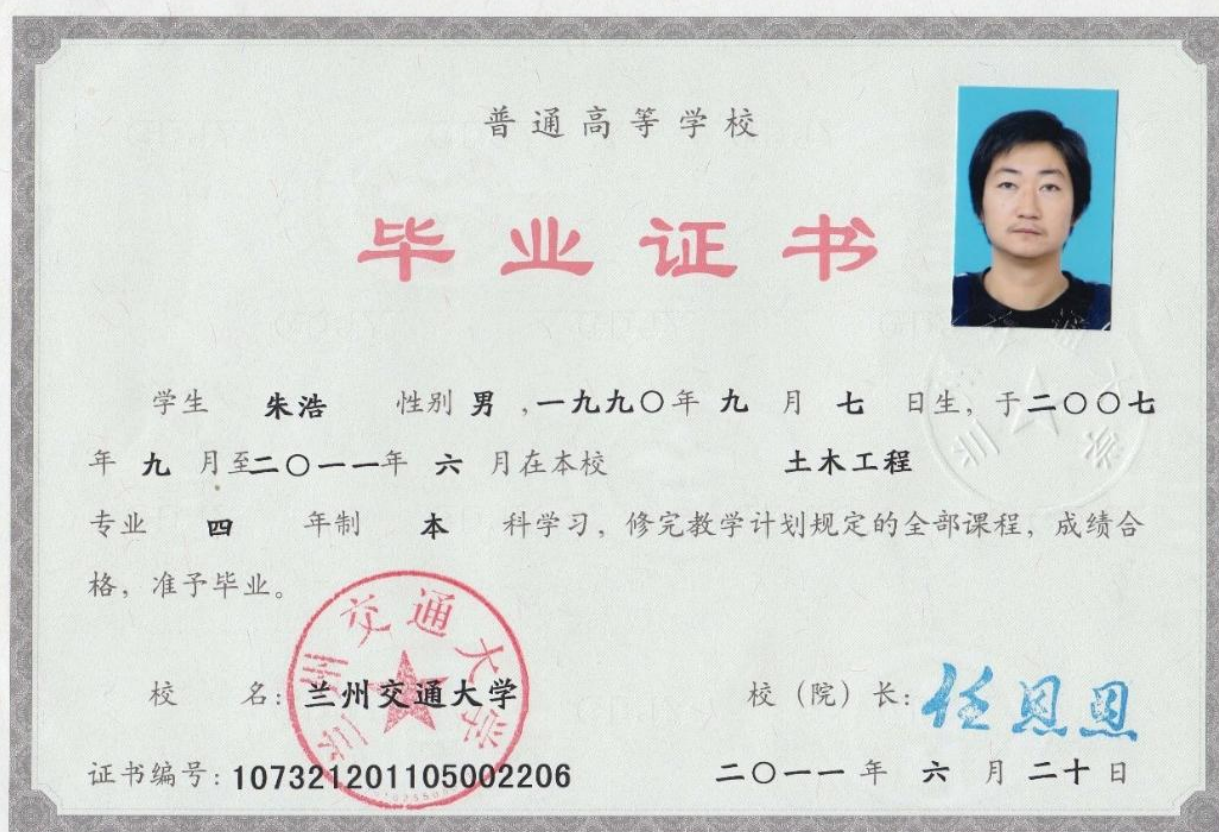 普通高等学校
毕业证书
学生 朱浩 性别 男 ,一九九〇年 九 月 七 日生, 于二〇〇七
年 九 月至二〇一一年 六 月在本校 土木工程
专业 四 年制 本 科学习, 修完教学计划规定的全部课程, 成绩合
格, 准予毕业。
兰州交通大学
校 名: 兰州交通大学 校 (院) 长: 任恩恩
证书编号: 107321201105002206 二〇一一 年 六 月 二十 日